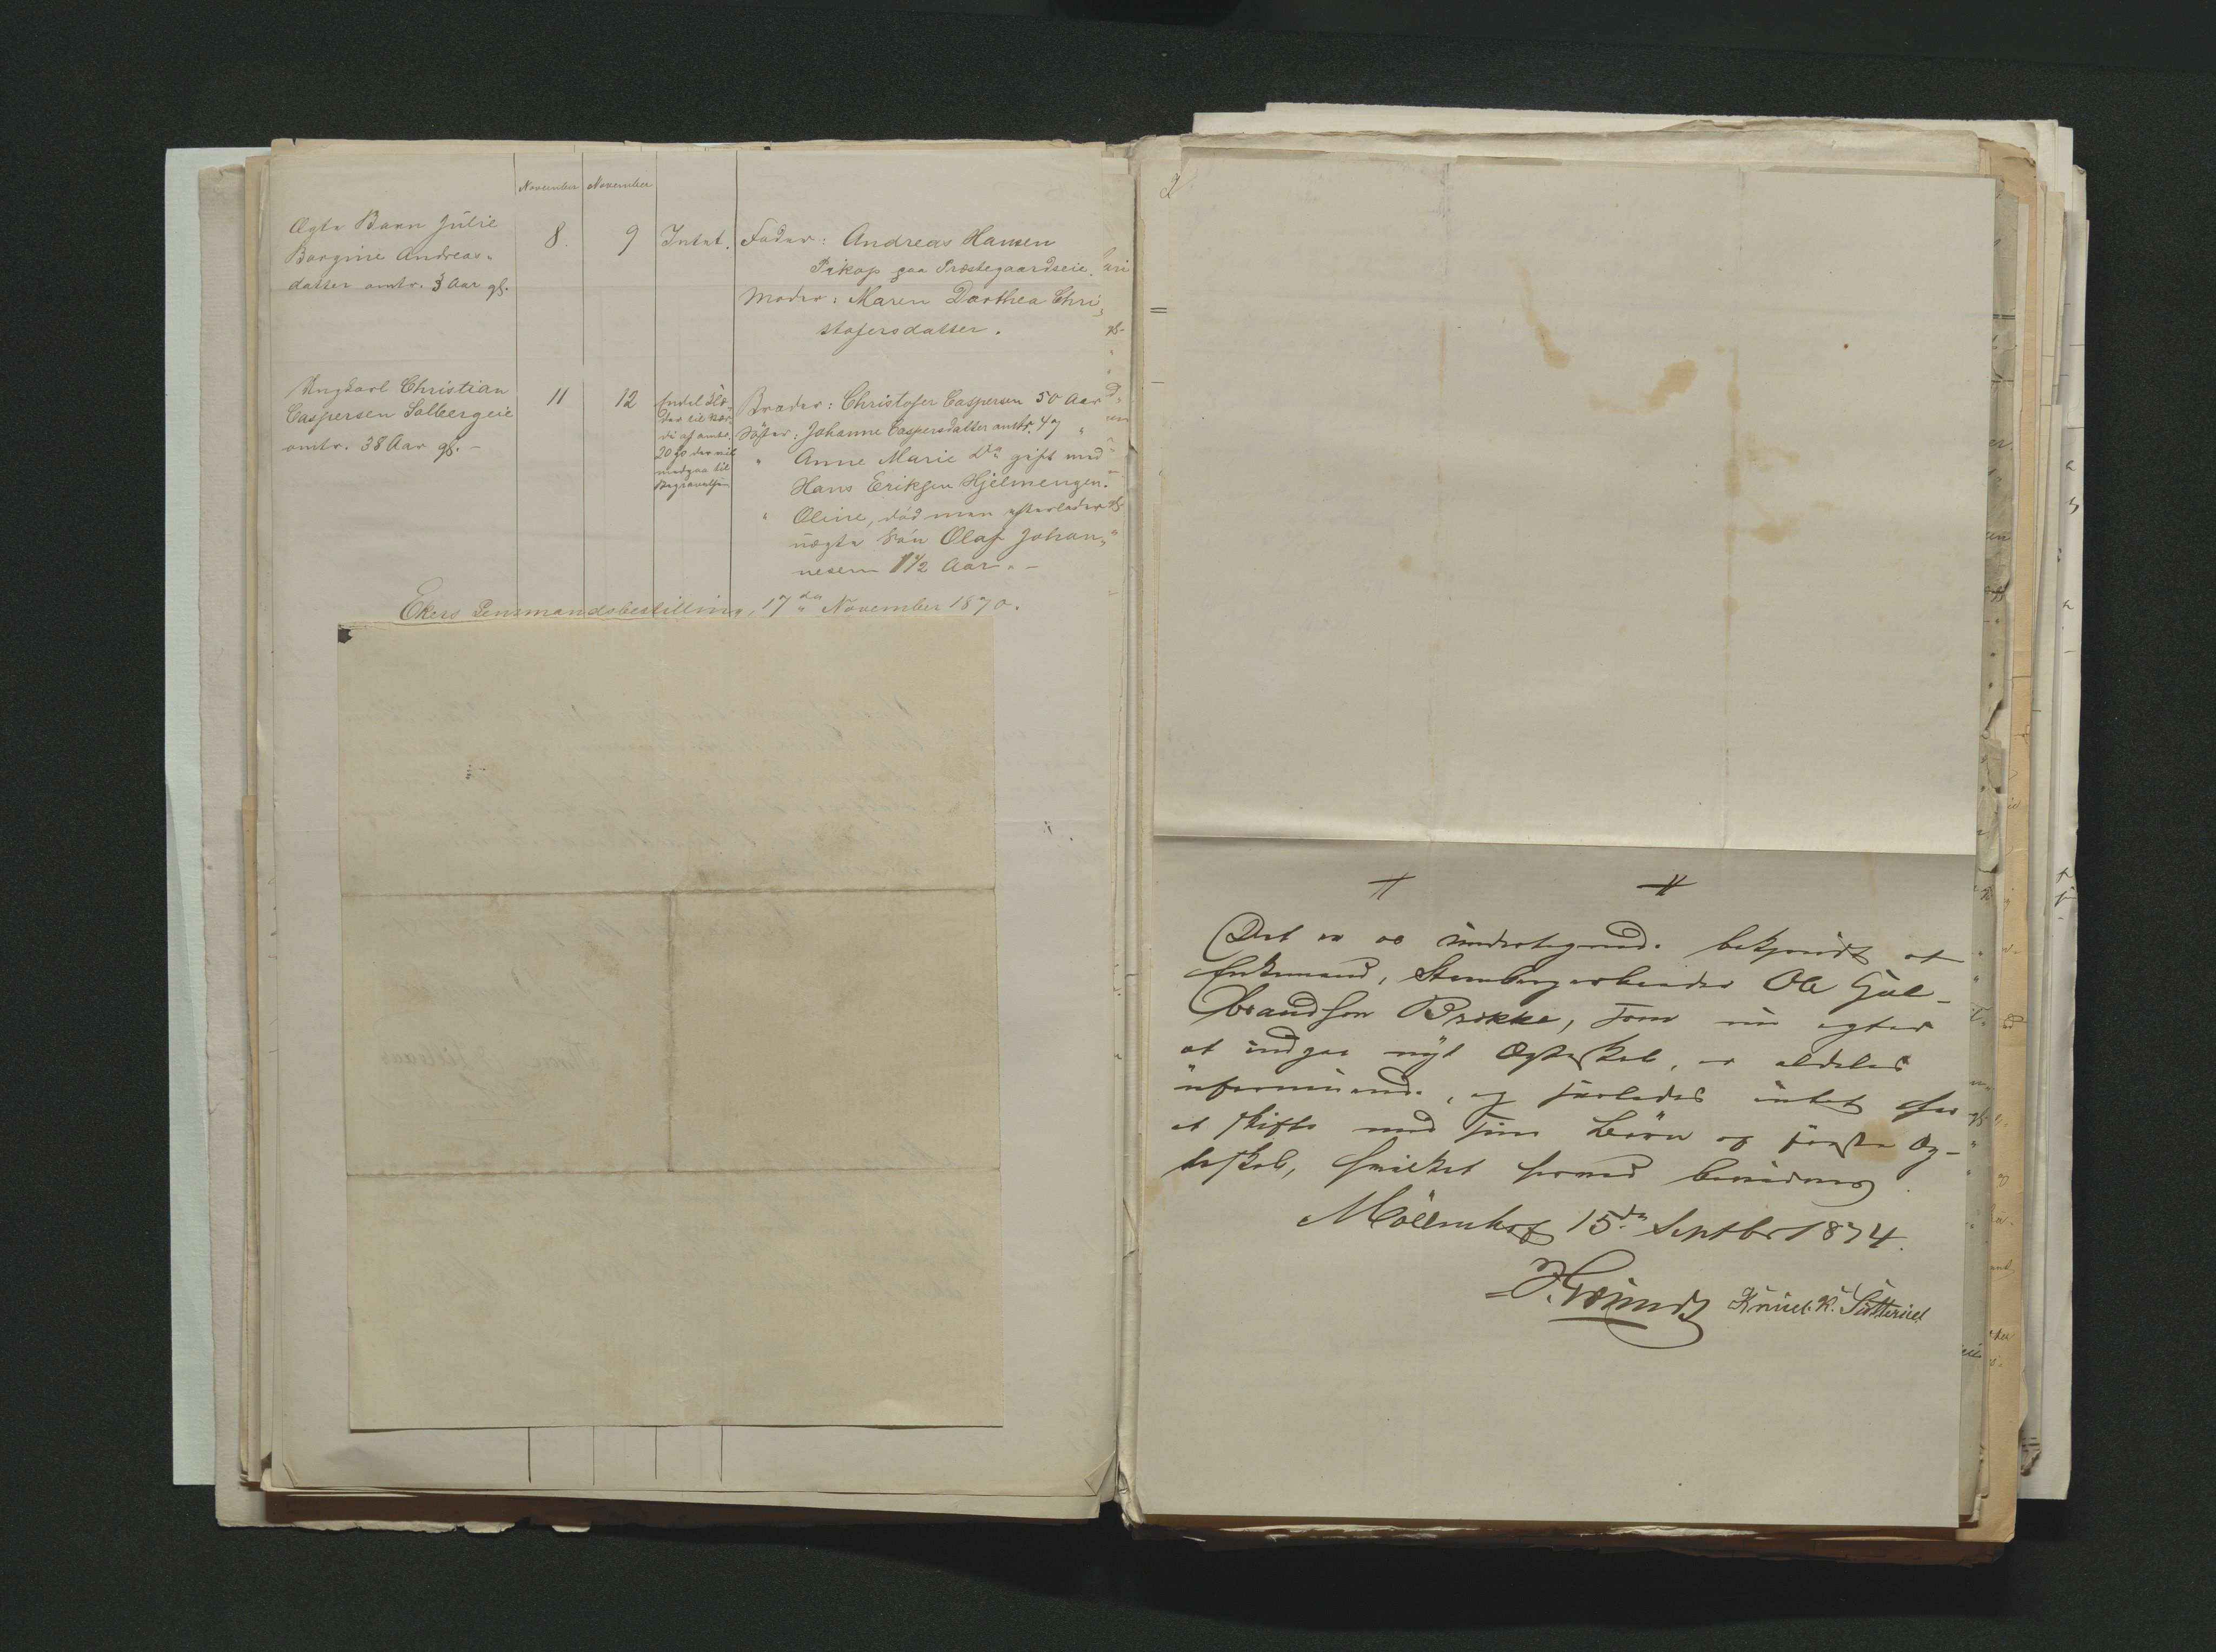 November November
Ægte Barn Julie
Borgine Andreas-
datter omtr. 3 Aar gl.
8.
9
Intet.
Fader: Andreas Hansen
Pikop paa Præstegaardseie.
Moder: Maren Dorthea Chri-
stofersdatter.
Ungkarl Christian
Caspersen Solbergeie
omtr. 38 Aar gl. -
11
12
Endel Klæ-
der til Vær-
di af omtr.
20 der vil
medgaa til
Begravelsen
Broder: Christofer Caspersen 50 Aar
Søster: Johanne Caspersdatter omtr. 47 "
" Anne Marie Do gift med
Hans Eriksen Hjelmengen.
" Oline, död men efterlader
uægte Sön Olaf Johan-
nesen 1½ Aar. -
Ekers Lensmandsbestilling, 17de November 1870.
Det er os undertegnede bekjendt at
Enkemand, Stenbergarbeider Ole Gul-
brandsen Brekke, som nu agter
at indgaa nyt Ægteskab, er aldeles
uformuende, og saaledes intet har
at skifte med sine Börn af förste Æg-
teskab, hvilket herved bevidnes.
Möllenhof 15de Septbr 1874.
Knud. K.